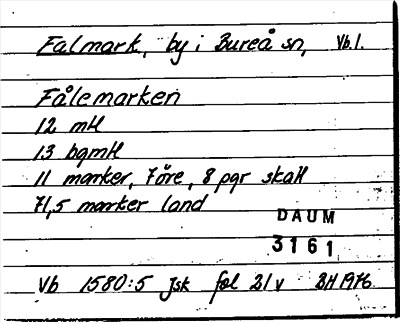 Falmark, by i Bureå sn, Vb. l.
Fålemarken
12 mtl
13 bgmtl
11 marker, 7 öre, 8 pgr skatt
71,5 marker land
DAUM
3161
Vb 1580:5 Jsk fol 21v BH 1976